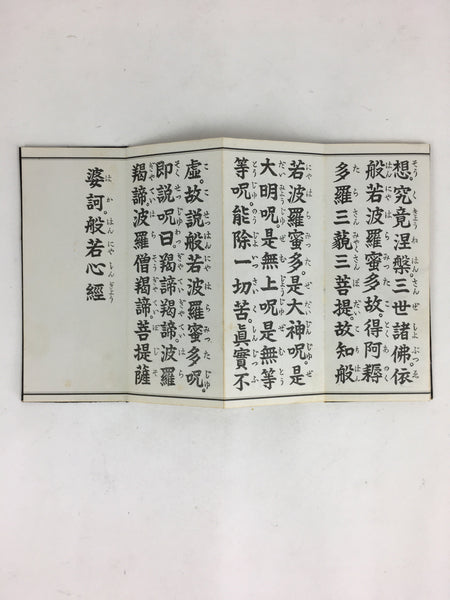 想。究竟涅槃。三世諸佛。依
般若波羅蜜多故。得阿耨
多羅三藐三菩提。故知般
若波羅蜜多。是大神呪。是
大明呪。是無上呪。是無等
等呪。能除一切苦。眞實不
虛。故說般若波羅蜜多呪。
即說呪曰。羯諦羯諦。波羅
羯諦。波羅僧羯諦。菩提薩
婆訶。般若心經